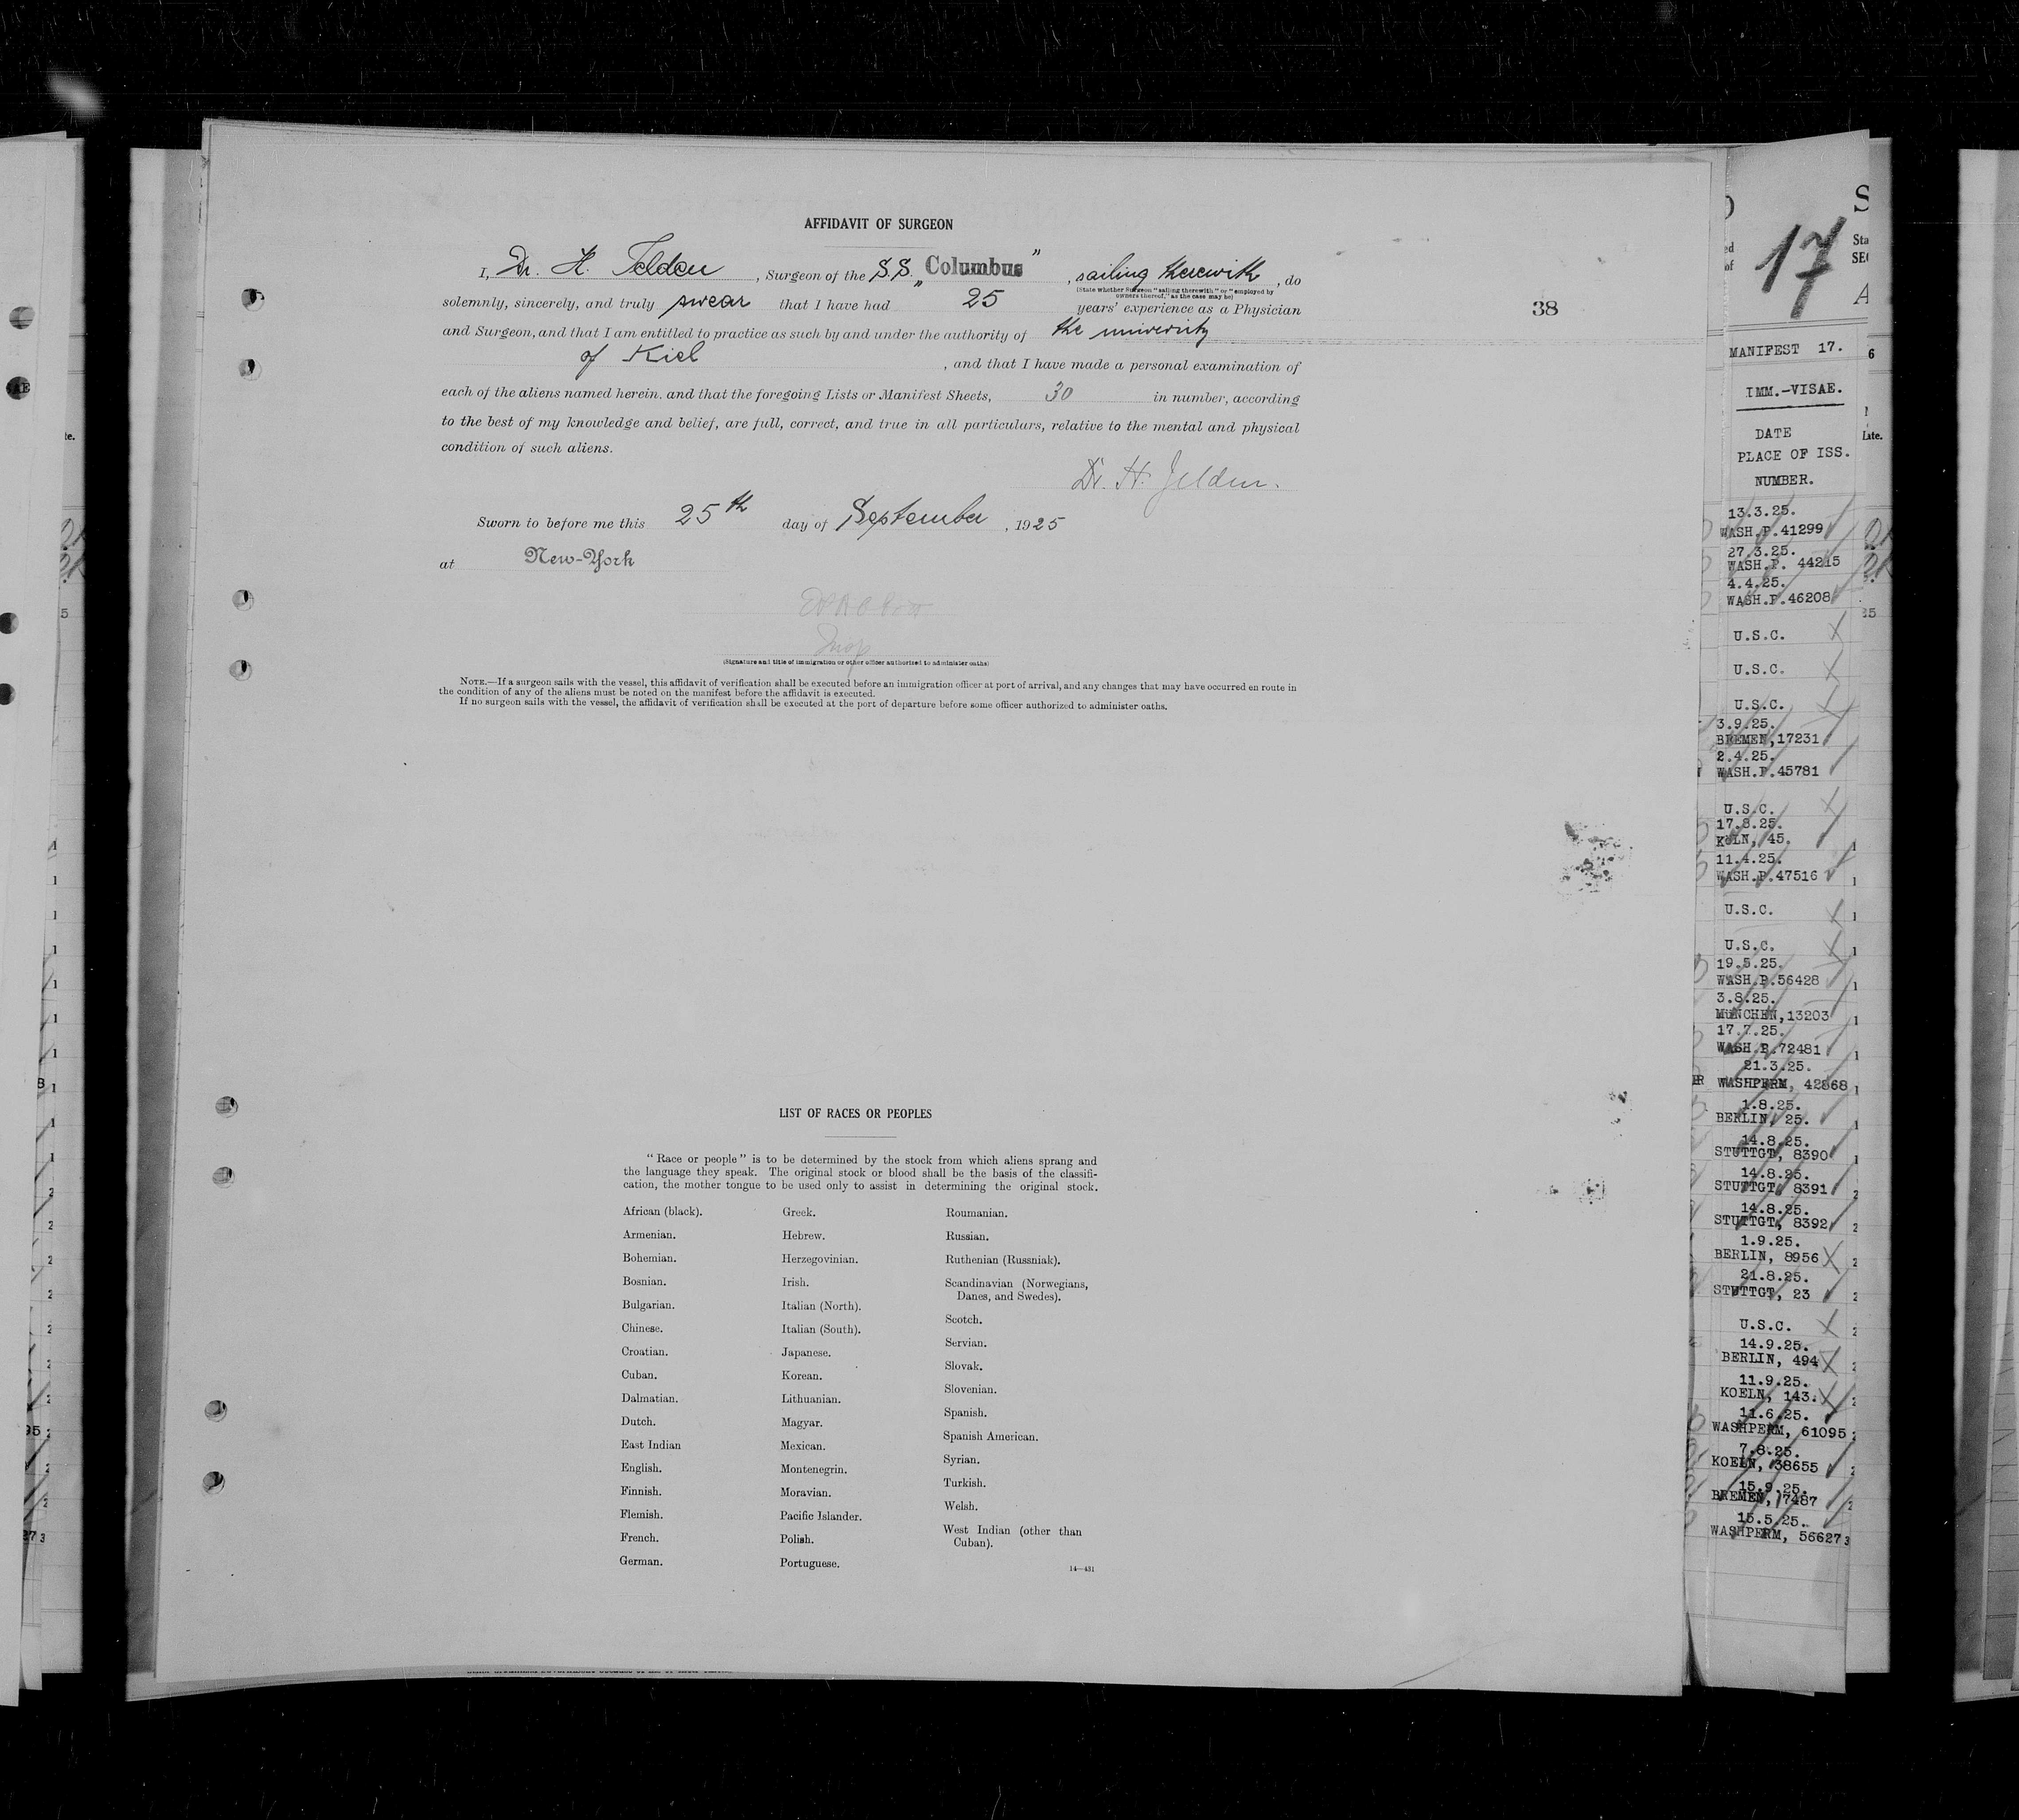 AFFIDAVIT OF SURGEON
I, Dr. H. Jelden, Surgeon of the S.S. „Columbus", sailing therewith, do
(State whether Surgeon "sailing therewith" or "employed by owners thereof," as the case may be)
solemnly, sincerely, and truly swear that I have had 25 years' experience as a Physician
38
and Surgeon, and that I am entitled to practice as such by and under the authority of the university
of Kiel, and that I have made a personal examination of
each of the aliens named herein, and that the foregoing Lists or Manifest Sheets, 30 in number, according
to the best of my knowledge and belief, are full, correct, and true in all particulars, relative to the mental and physical
condition of such aliens.
Dr. H. Jelden.
Sworn to before me this 25th day of September, 1925
at New-York
Insp
(Signature and title of immigration or other officer authorized to administer oaths)
NOTE.—If a surgeon sails with the vessel, this affidavit of verification shall be executed before an immigration officer at port of arrival, and any changes that may have occurred en route in
the condition of any of the aliens must be noted on the manifest before the affidavit is executed.
If no surgeon sails with the vessel, the affidavit of verification shall be executed at the port of departure before some officer authorized to administer oaths.
LIST OF RACES OR PEOPLES
"Race or people" is to be determined by the stock from which aliens sprang and
the language they speak. The original stock or blood shall be the basis of the classifi-
cation, the mother tongue to be used only to assist in determining the original stock.
African (black).
Armenian.
Bohemian.
Bosnian.
Bulgarian.
Chinese.
Croatian.
Cuban.
Dalmatian.
Dutch.
East Indian
English.
Finnish.
Flemish.
French.
German.
Greek.
Hebrew.
Herzegovinian.
Irish.
Italian (North).
Italian (South).
Japanese.
Korean.
Lithuanian.
Magyar.
Mexican.
Montenegrin.
Moravian.
Pacific Islander.
Polish.
Portuguese.
Roumanian.
Russian.
Ruthenian (Russniak).
Scandinavian (Norwegians,
Danes, and Swedes).
Scotch.
Servian.
Slovak.
Slovenian.
Spanish.
Spanish American.
Syrian.
Turkish.
Welsh.
West Indian (other than
Cuban).
14—431
17
MANIFEST 17.
IMM.-VISAE.
DATE
PLACE OF ISS.
NUMBER.
13.3.25.
WASH.P.41299
27.3.25.
WASH.P. 44215
4.4.25.
WASH.P.46208
U.S.C.
U.S.C.
U.S.C.
3.9.25.
BREMEN,17231
2.4.25.
WASH.P.45781
U.S.C.
17.8.25.
KöLN, 45.
11.4.25.
WASH.P.47516
U.S.C.
U.S.C.
19.5.25.
WASH.P.56428
3.8.25.
MüNCHEN,13203
17.7.25.
WASH.P.72481
21.3.25.
WASHPERM, 42868
1.8.25.
BERLIN, 25.
14.8.25.
STUTTGT, 8390
14.8.25.
STUTTGT, 8391
14.8.25.
STUTTGT, 8392
1.9.25.
BERLIN, 8956
21.8.25.
STUTTGT, 23
U.S.C.
14.9.25.
BERLIN, 494
11.9.25.
KOELN, 143.
11.6.25.
WASHPERM, 61095
7.8.25.
KOELN, 38655
15.9.25.
BREMEN, 17487
15.5.25.
WASHPERM, 56627